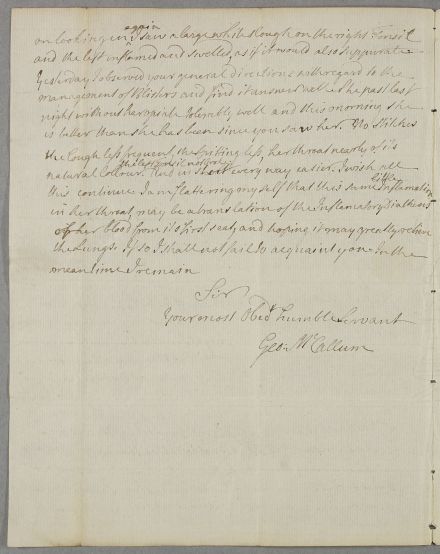 again
on looking in I saw a large white slough on the right Tonsil
and the left inflamed and swelled, as if it would also suppurate
Yesterday I observed your general directions with regard to the
management of Blisters and find it answer well. She past last
night without her opiate tolerably well and this morning she
is better than she has been since you saw her. No Stitches
the Cough less frequent the Spitting less, her throat nearly of it's
natural Colour. And in short every way easier. I wish all
this continue I am flattering my self that this same Inflamation
in her throat may be a translation of the Inflamatory Diathesis
of her blood from it's first seat, and hoping it may greatly relieve
the Lungs. If so I shall not fail to acquaint you. In the
mean time I remain
Sir
Your most Obed.t humble Servant
Geo: McCallum